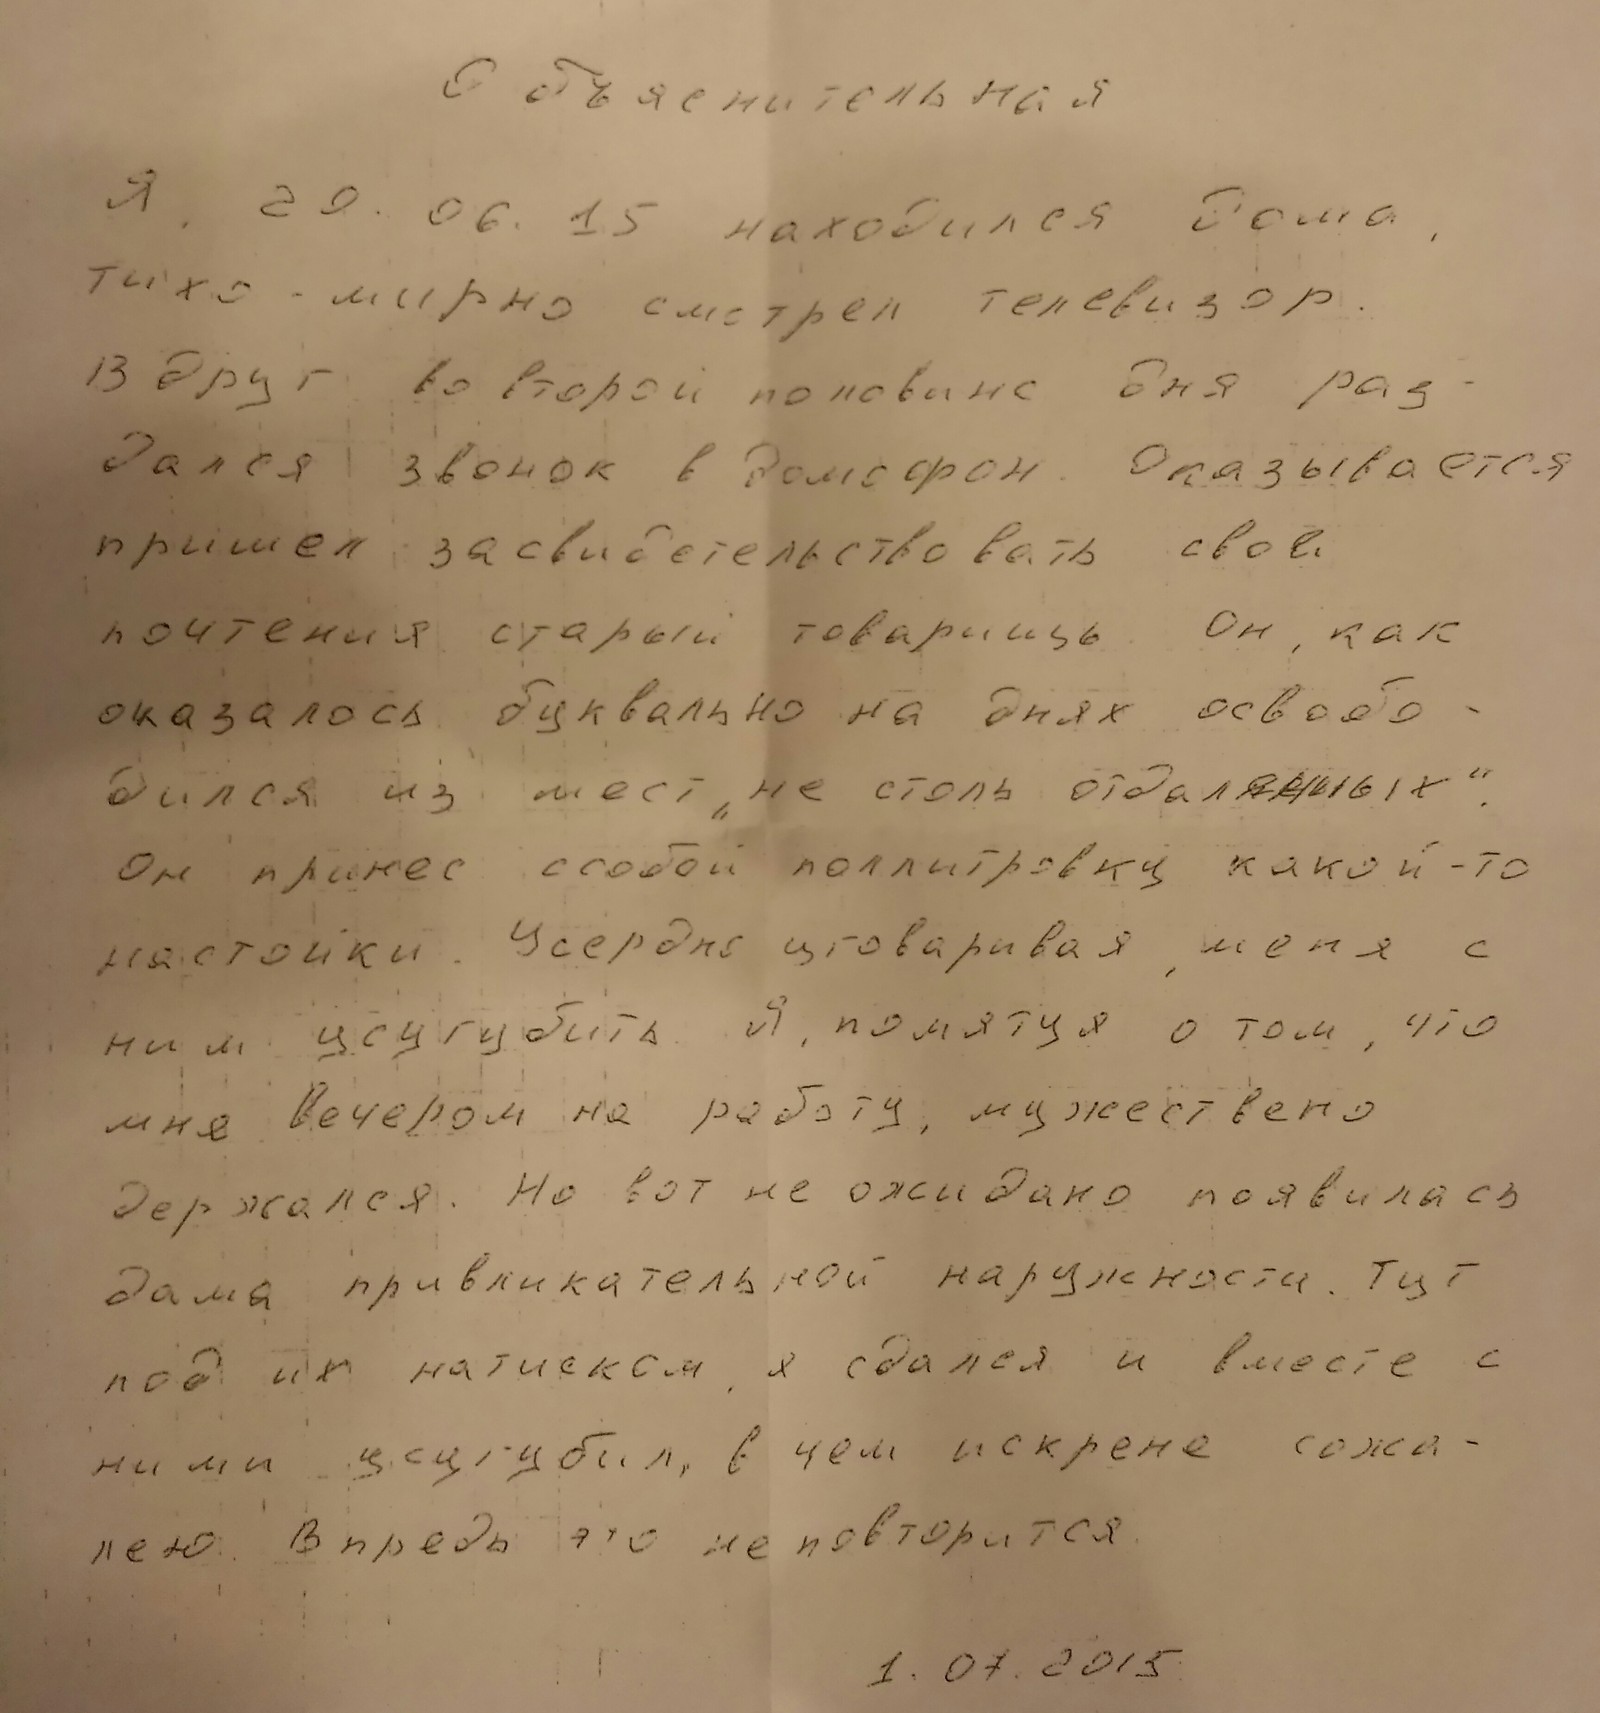 Объяснительная
Я, 29.06.15 находился дома,
тихо-мирно смотрел телевизор.
Вдруг во второй половине дня раз-
дался звонок в домофон. Оказывается
пришел засвидетельствовать свои
почтения старый товарищь. Он, как
оказалось буквально на днях освобо-
дился из мест „не столь отдалянных“.
Он принес ссобой поллитровку какой-то
настойки. Усердно уговаривая, меня с
ним усугубить. Я, помятуя о том, что
мне вечером на работу, мужествено
держался. Но вот не ожидано появилась
дама привликательной наружности. Тут
под их натиском, я сдался и вместе с
ними усугубил, в чем искрене сожа-
лею. Впредь это не повторится.
1.07.2015